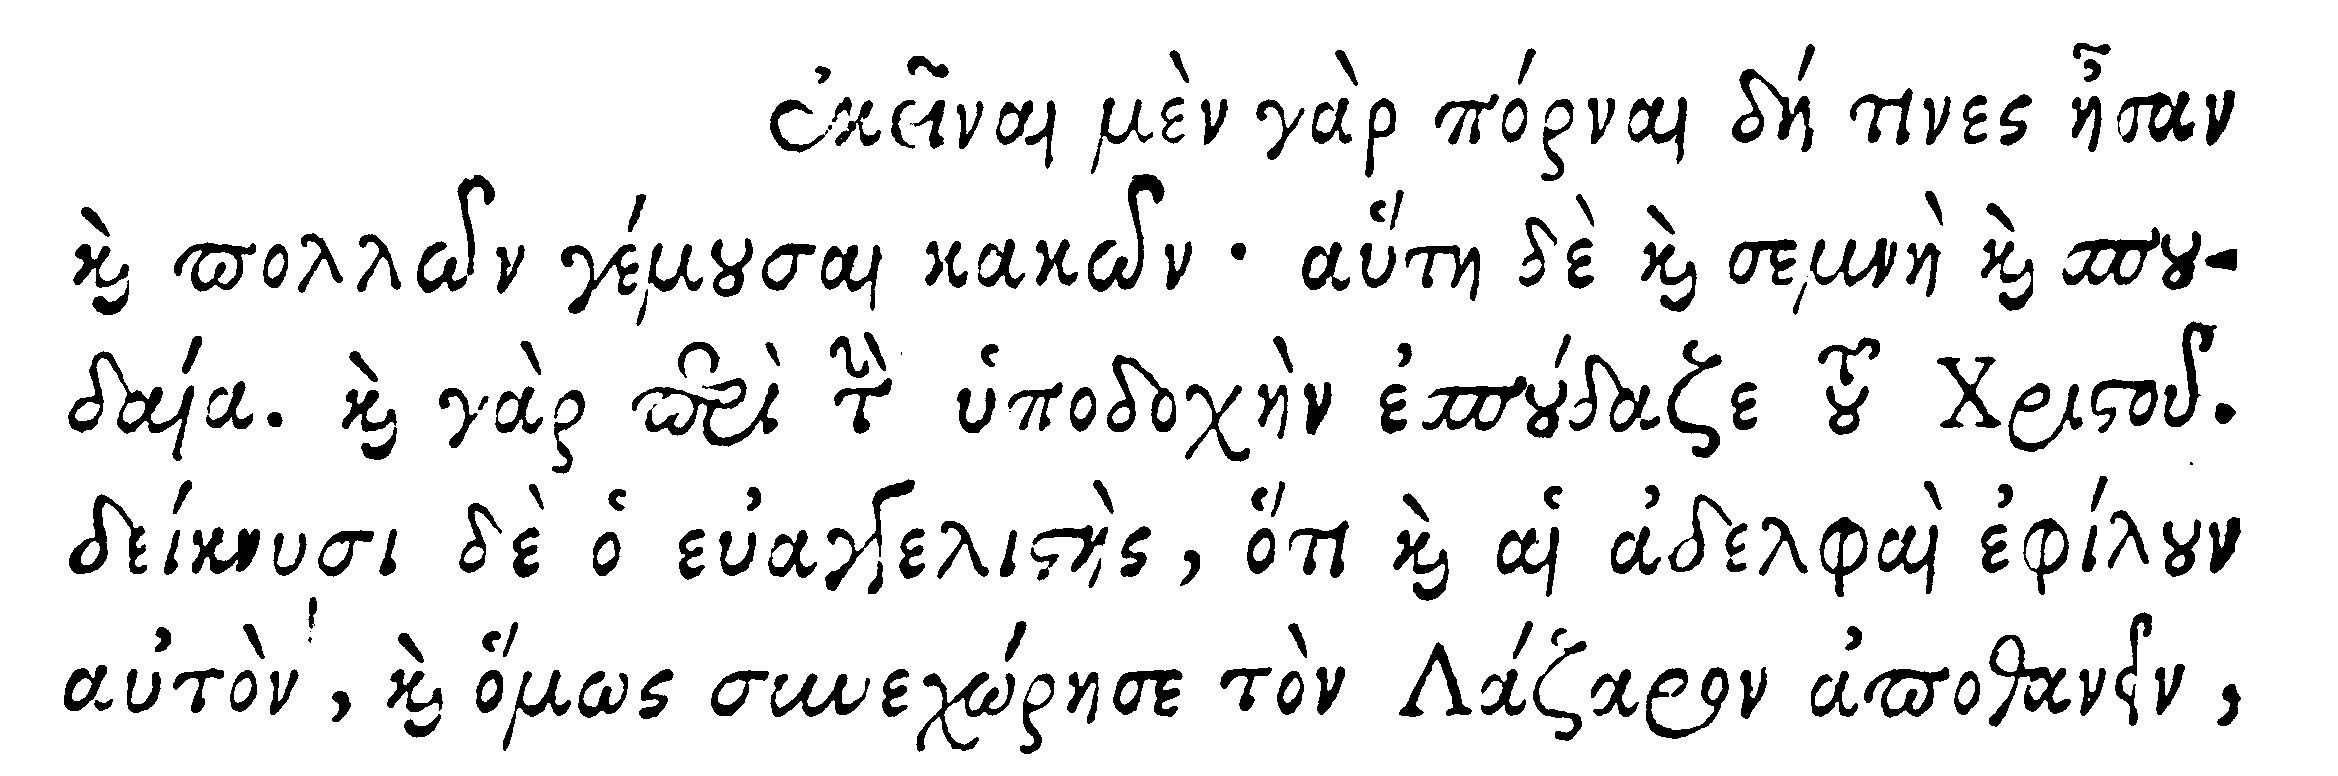 ἐκεῖναι μὲν γὰρ πόρναι δή τινες ἦσαν
καὶ πολλῶν γέμουσαι κακῶν· αὕτη δὲ καὶ σεμνὴ καὶ σπου-
δαία. καὶ γὰρ περὶ τὴν ὑποδοχὴν ἐσπούδαζε τοῦ Χριστοῦ.
δείκνυσι δὲ ὁ εὐαγγελιστὴς, ὅτι καὶ αἱ ἀδελφαὶ ἐφίλουν
αὐτὸν, καὶ ὅμως συνεχώρησε τὸν Λάζαρον ἀποθανεῖν,